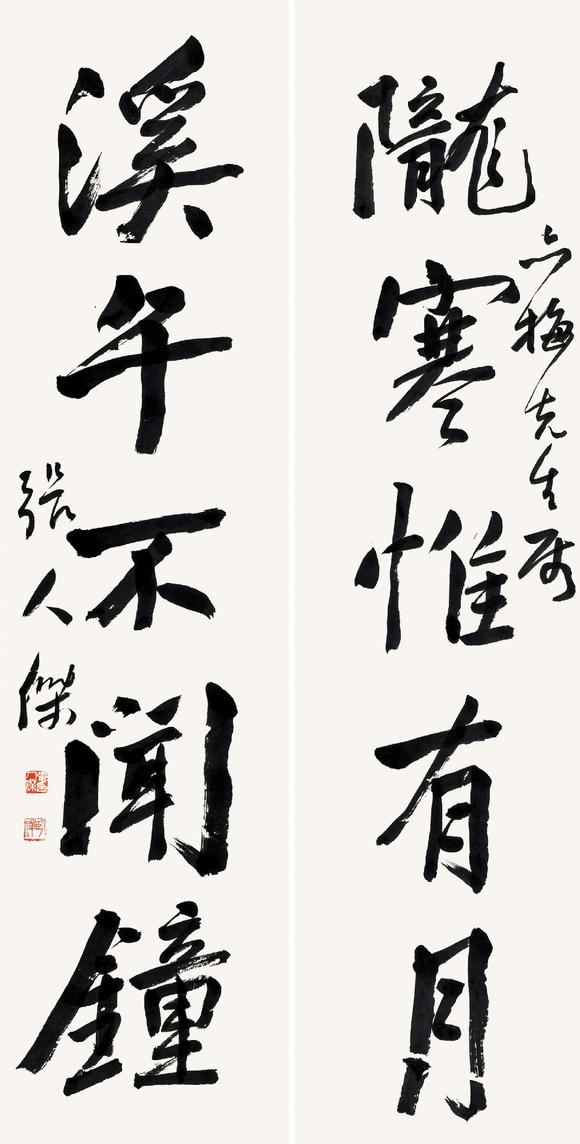 隴寒惟有月
六梅先生属
溪午不聞鐘
張人傑